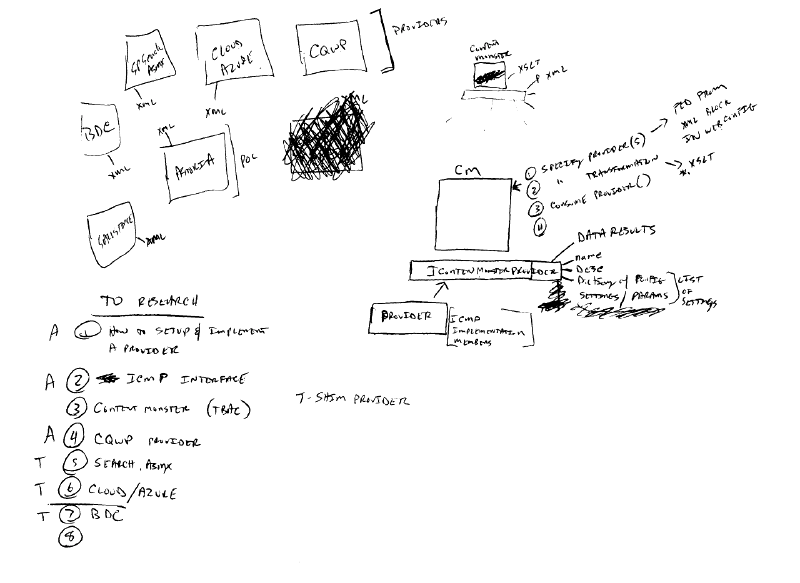 CLOUD
AZURE
CQWP
PROVIDERS
XML
XML
BDC
XML
XML
ASTORIA
POC
XML
CONTENT
MONSTER
XSLT
XML
CM
① SPECIFY PROVIDER(S)
② " TRANSFORMATION
③ CONSUME PROVIDER()
④
FED FROM
XML BLOCK
IN WEB.CONFIG
XSLT
DATA RESULTS
ICONTENTMONSTERPROVIDER
name
DESC
Dictionary of
SETTINGS / PARAMS
LIST
OF
SETTINGS
PROVIDER
ICMP
IMPLEMENTATION
MEMBERS
TO RESEARCH
A ① HOW TO SETUP & IMPLEMENT
A PROVIDER
A ② ICMP INTERFACE
③ CONTENT MONSTER (TBAC)
A ④ CQWP PROVIDER
T ⑤ SEARCH.ASMX
T ⑥ CLOUD/AZURE
T ⑦ BDC
⑧
T-SHIM PROVIDER